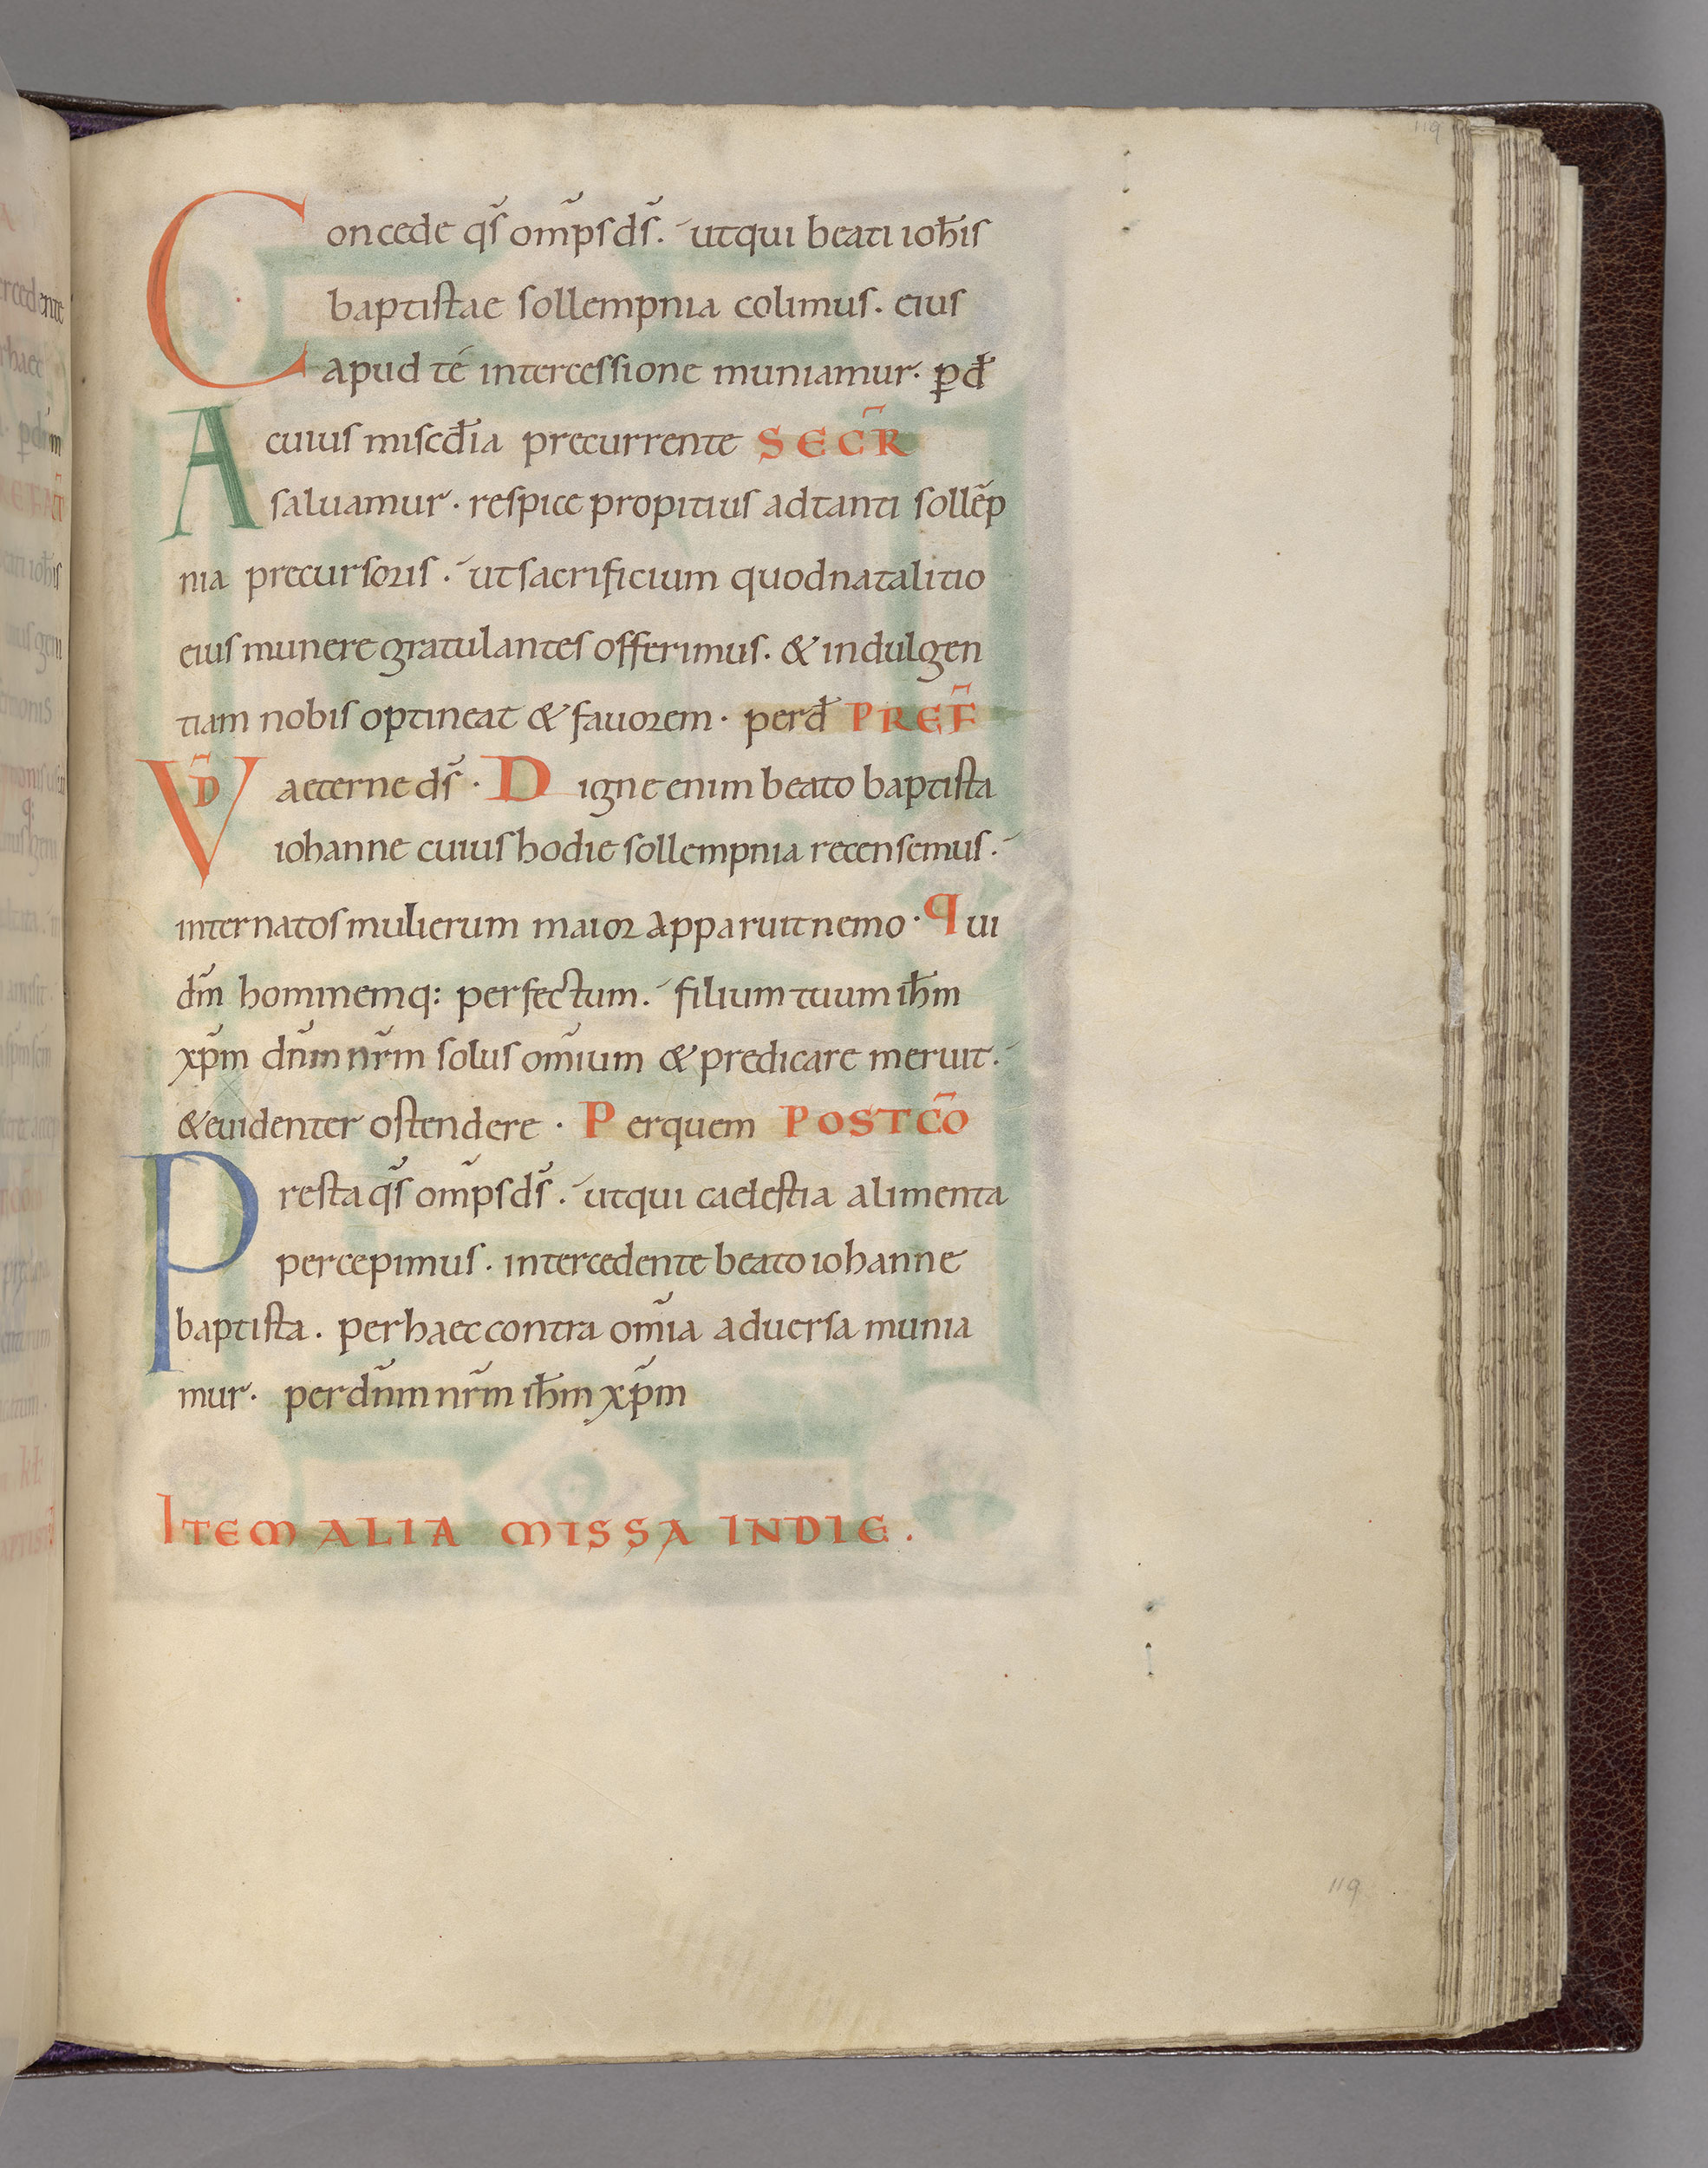 119
Concede qs̃ om̃ps ds̃. ut qui beati ioħis
baptistae sollempnia colimus. eius
apud té intercessione muniamur. ꝑ đ
Acuius miscđia precurrente SECR̃
saluamur. respice propitius ad tanti sollẽp
nia precursoris. ut sacrificium quod natalitio
eius munere gratulantes offerimus. & indulgen
tiam nobis optineat & fauorem. per đ PREF̃
VD̃ aeterne ds̃. Digne enim beato baptista
iohanne cuius hodie sollempnia recensemus.
inter natos mulierum maior apparuit nemo. Qui
dm̃ hominemq: perfectum. filium tuum iħm
xp̃m dñm nr̃m solus om̃ium & predicare meruit.
& euidenter ostendere. Per quem POST CÕ
Presta qs̃ om̃ps ds̃. ut qui caelestia alimenta
percepimus. intercedente beato iohanne
baptista. per haec contra om̃ia aduersa munia
mur. per dñm nr̃m iħm xp̃m
ITEM ALIA MISSA IN DIE.
119